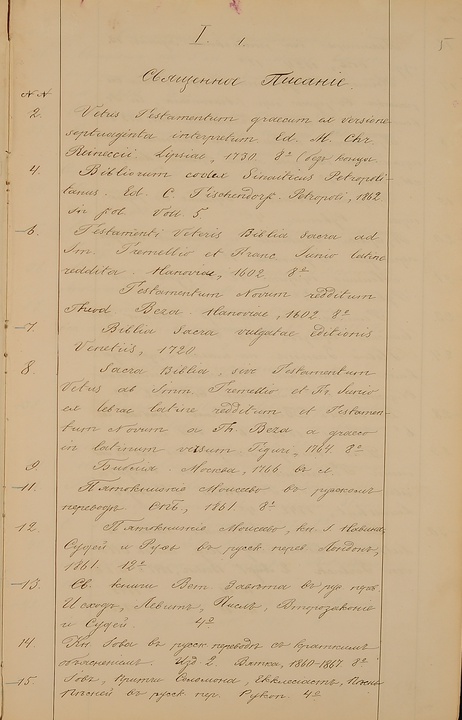 I. 1.
5
Священное Писаніе.
NN
2. Vetus Testamentum graecum ex versione
septuaginta interpretum Ed. M. Chr.
Reineccii. Lipsiae, 1730. 8° (безъ конца
4. Bibliorum codex Sinaiticus Petropoli-
tanus. Ed. C. Tischendorf. Petropoli, 1862
in fol. Voll. 5
6. Testamenti Veteris Biblia Sacra ad
Im. Tremellio et Franc. Junio latine
reddita. Hanoviae, 1602 8°
Testamentum Novum redditum
Theod Beza. Hanoviae, 1602 8°
7. Biblia Sacra vulgatae editionis
Venetiis, 1720.
8. Sacra Biblia, sive Testamentum
Vetus ab Imm. Tremellio et Fr. Junio
ex hebraeo latine redditum et Testamen-
tum Novum a Th. Beza a graeco
in latinum versum, Tiguri, 1764 8°
9. Библия. Москва, 1766 въ л.
11. Пятокнижіе Моисеево въ русскомъ
переводѣ Спб, 1861. 8°
12. Пятокнижіе Моисеево, кн. І. Навина,
Судей и Руѳь въ русск. перев. Лондонъ,
1861. 12°
13. Св. книги Вет Завѣта въ рус. пер.
Исходъ, Левитъ, Числъ, Второзаконіе
и Судей. 4°
14. Кн. Іова въ русск. переводѣ съ краткимъ
объясненіемъ. Изд. 2. Вятка, 1860-1867. 8°
15. Іовъ, Притчи Соломона, Екклесіастъ, Пѣснь
Пѣсней въ русск. пер. Рукоп. 4°